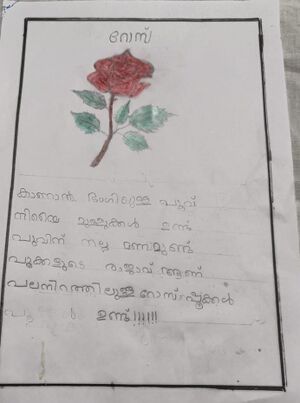 റോസ്
കാണാൻ ഭംഗിയുള്ള പൂവ്
നിറയെ മുള്ളുകൾ ഉണ്ട്
പൂവിന് നല്ല മണമുണ്ട്
പൂക്കളുടെ രാജാവ് ആണ്
പലനിറത്തിലുള്ള റോസാപ്പൂക്കൾ
ഉണ്ട്!!!!!!